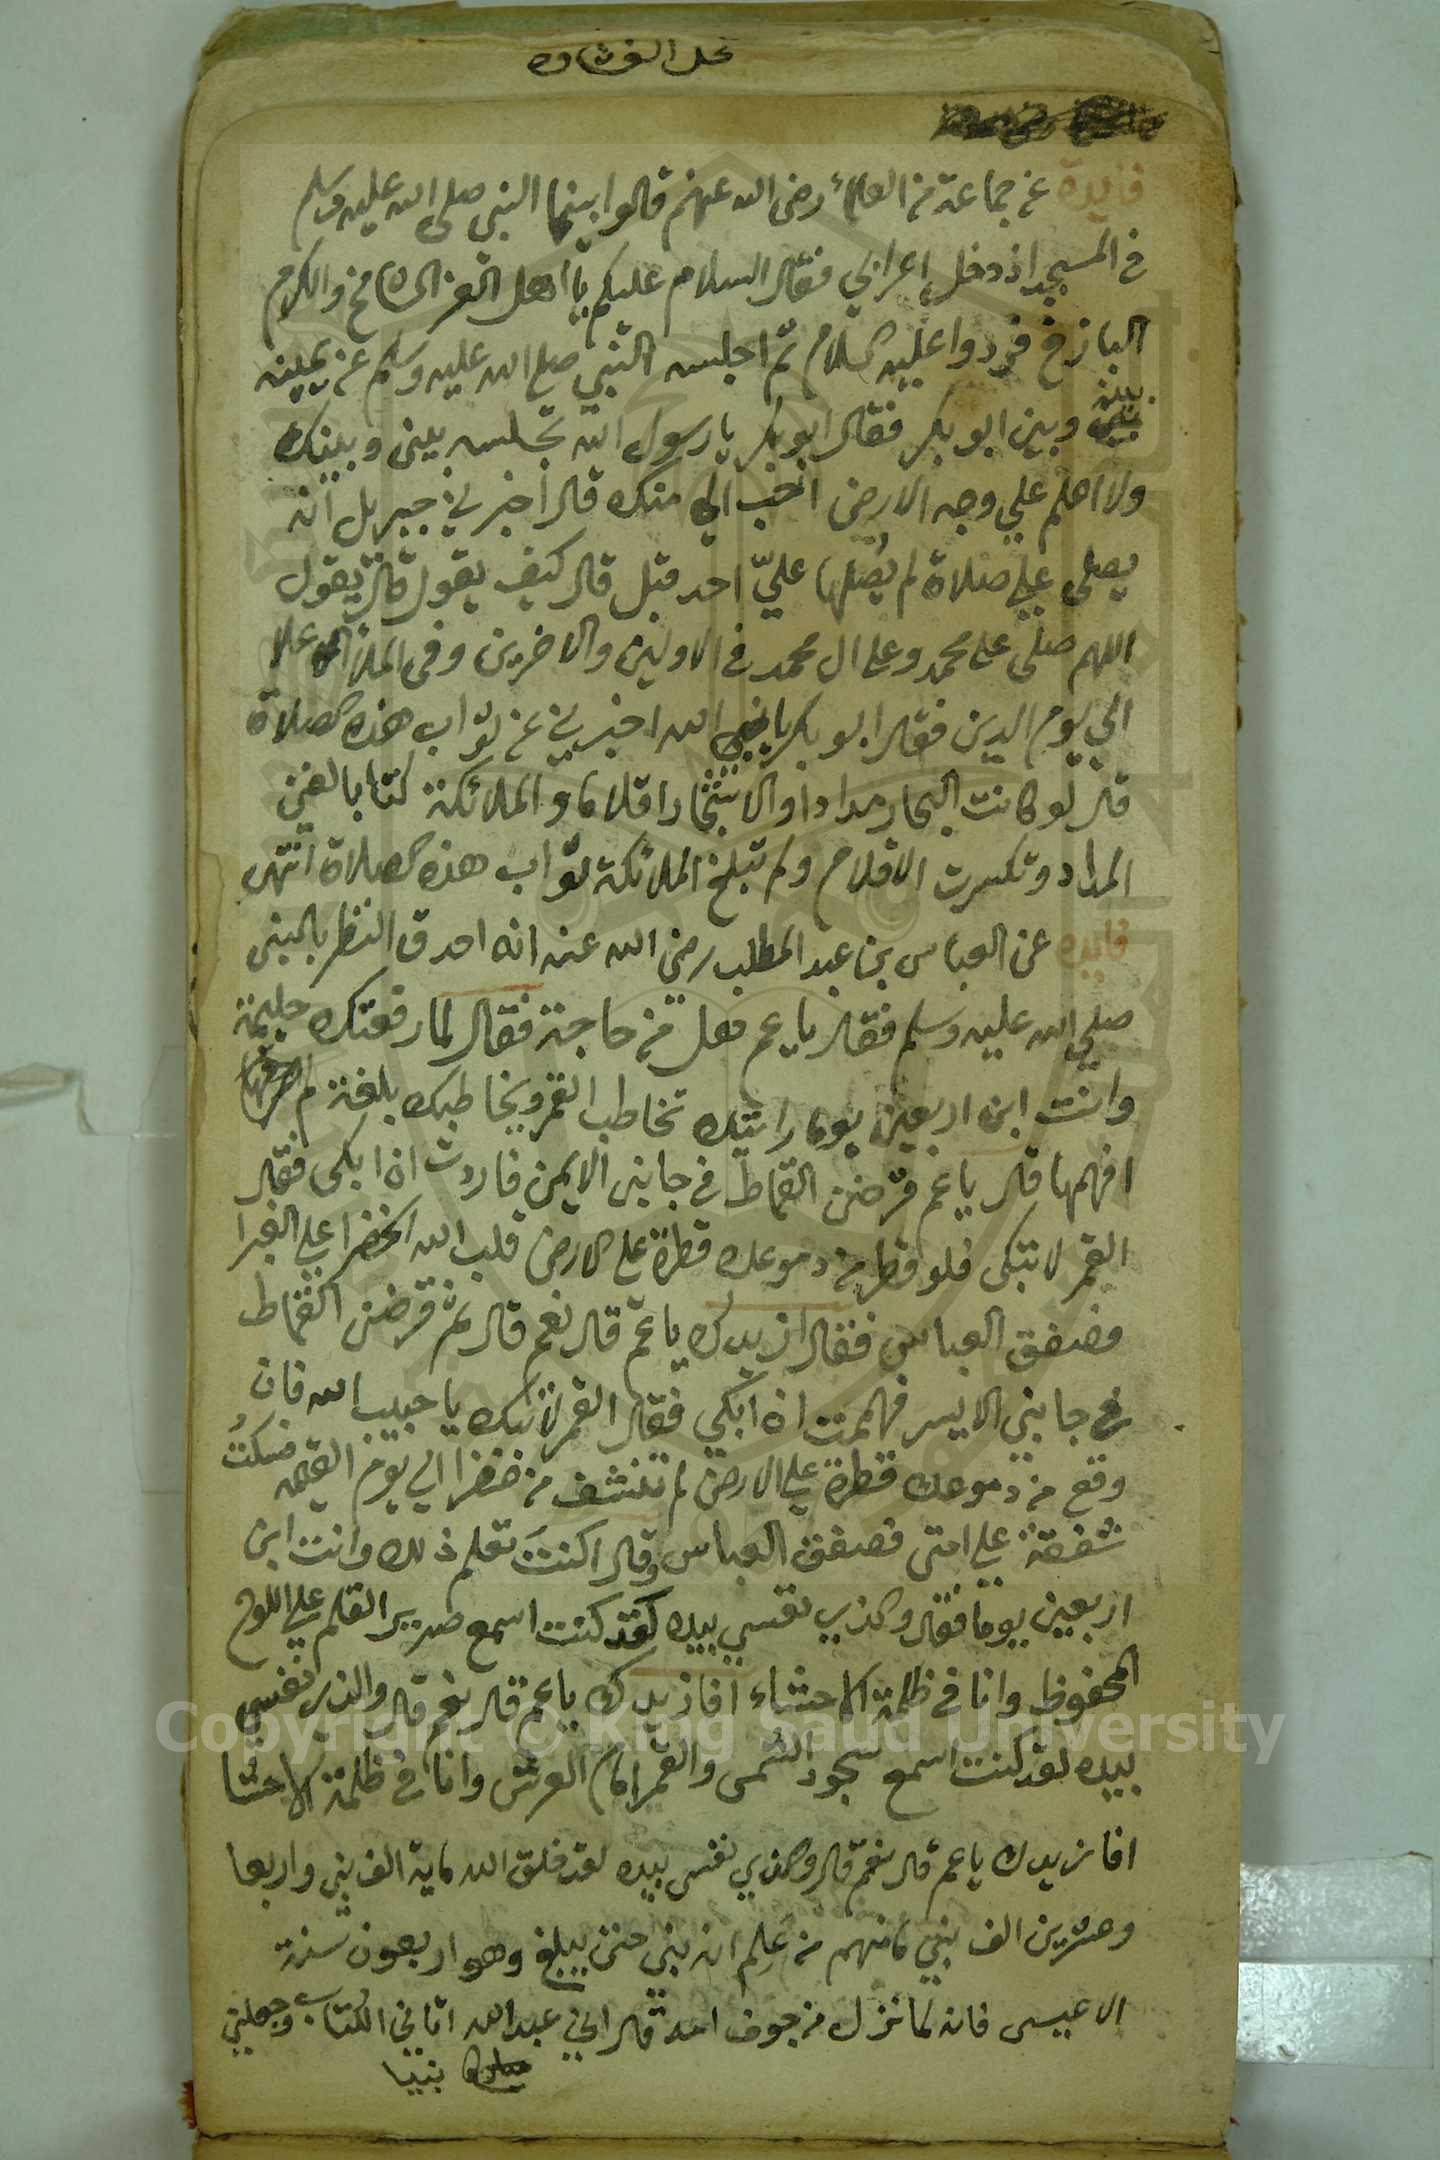 فايدة عن جماعة من العلماء رضى الله عنهم قالوا بينما النبي صلى الله عليه وسلم
في المسجد اذ دخل اعرابي فقال السلام عليكم يا اهل العز الشامخ والكرم
الباذخ فردوا عليه السلام ثم اجلسه النبي صلى الله عليه وسلم عن يمينه
بينه وبين ابو بكر فقال ابو بكر يا رسول الله تجلسه بينى وبينك
ولا اعلم علي وجه الارض احب الي منك قال اخبرني جبريل انه
يصلى علي صلاة لم يُصلها عليّ احد قبل قال كيف يقول قال يقول
اللهم صلى على محمد وعلى ال محمد في الاولين والاخرين وفى الملأ الاعلا
الي يوم الدين فقال ابو بكر يا نبي الله اخبرني عن ثواب هذه الصلاة
قال لو كانت البحار مدادا والاشجار اقلاما والملائكة كتابا لفنى
المداد وتكسرت الاقلام ولم تبلغ الملائكة ثواب هذه الصلاة انتهى
فايده عن العباس بن عبد المطلب رضى الله عنه انه احدق النظر بالنبى
صلي الله عليه وسلم فقال يا عم فهل من حاجة فقال لما رفعتك حليمة
وانت ابن اربعين يوما رايتك تخاطب القمر ويخاطبك بلغة لم
افهمها قال يا عم قرضنى القماط في جانبى الايمن فاردت ان ابكى فقال
القمر لا تبكى فلو قطر من دموعك قطرة على الارض قلب الله الخضرا علي الغبرا
فصفق العباس فقال ازيدك يا عم قال نعم قال ثم قرضنى القماط
في جانبي الايسر فهممت ان ابكي فقال القمر لا تبك يا حبيب الله فان
وقع من دموعك قطرة علي الارض لم تنشف من خضرا الي يوم القيمه فسكتُ
شفقة علي امتى فصفق العباس وقال اكنتَ تعلم ذلك وانت ابن
اربعين يوما فقال والذي نفسي بيده لقد كنت اسمع صرير القلم علي اللوح
المحفوظ وانا في ظلمة الاحشاء افازيدك يا عم قال نعم قال والذي نفسي
بيده لقد كنت اسمع سجود الشمس والقمر امام العرش وانا في ظلمة الاحشا
افازيدك يا عم قال نعم قال والذي نفسى بيده لقد خلق الله ماية الف نبي واربعا
وعشرين الف نبي ما منهم من علم انه نبي حتى يبلغ وهو اربعون سنة
الا عيسى فانه لما نزل من جوف امه قال اني عبد الله اتاني الكتاب وجعلني
نبيا